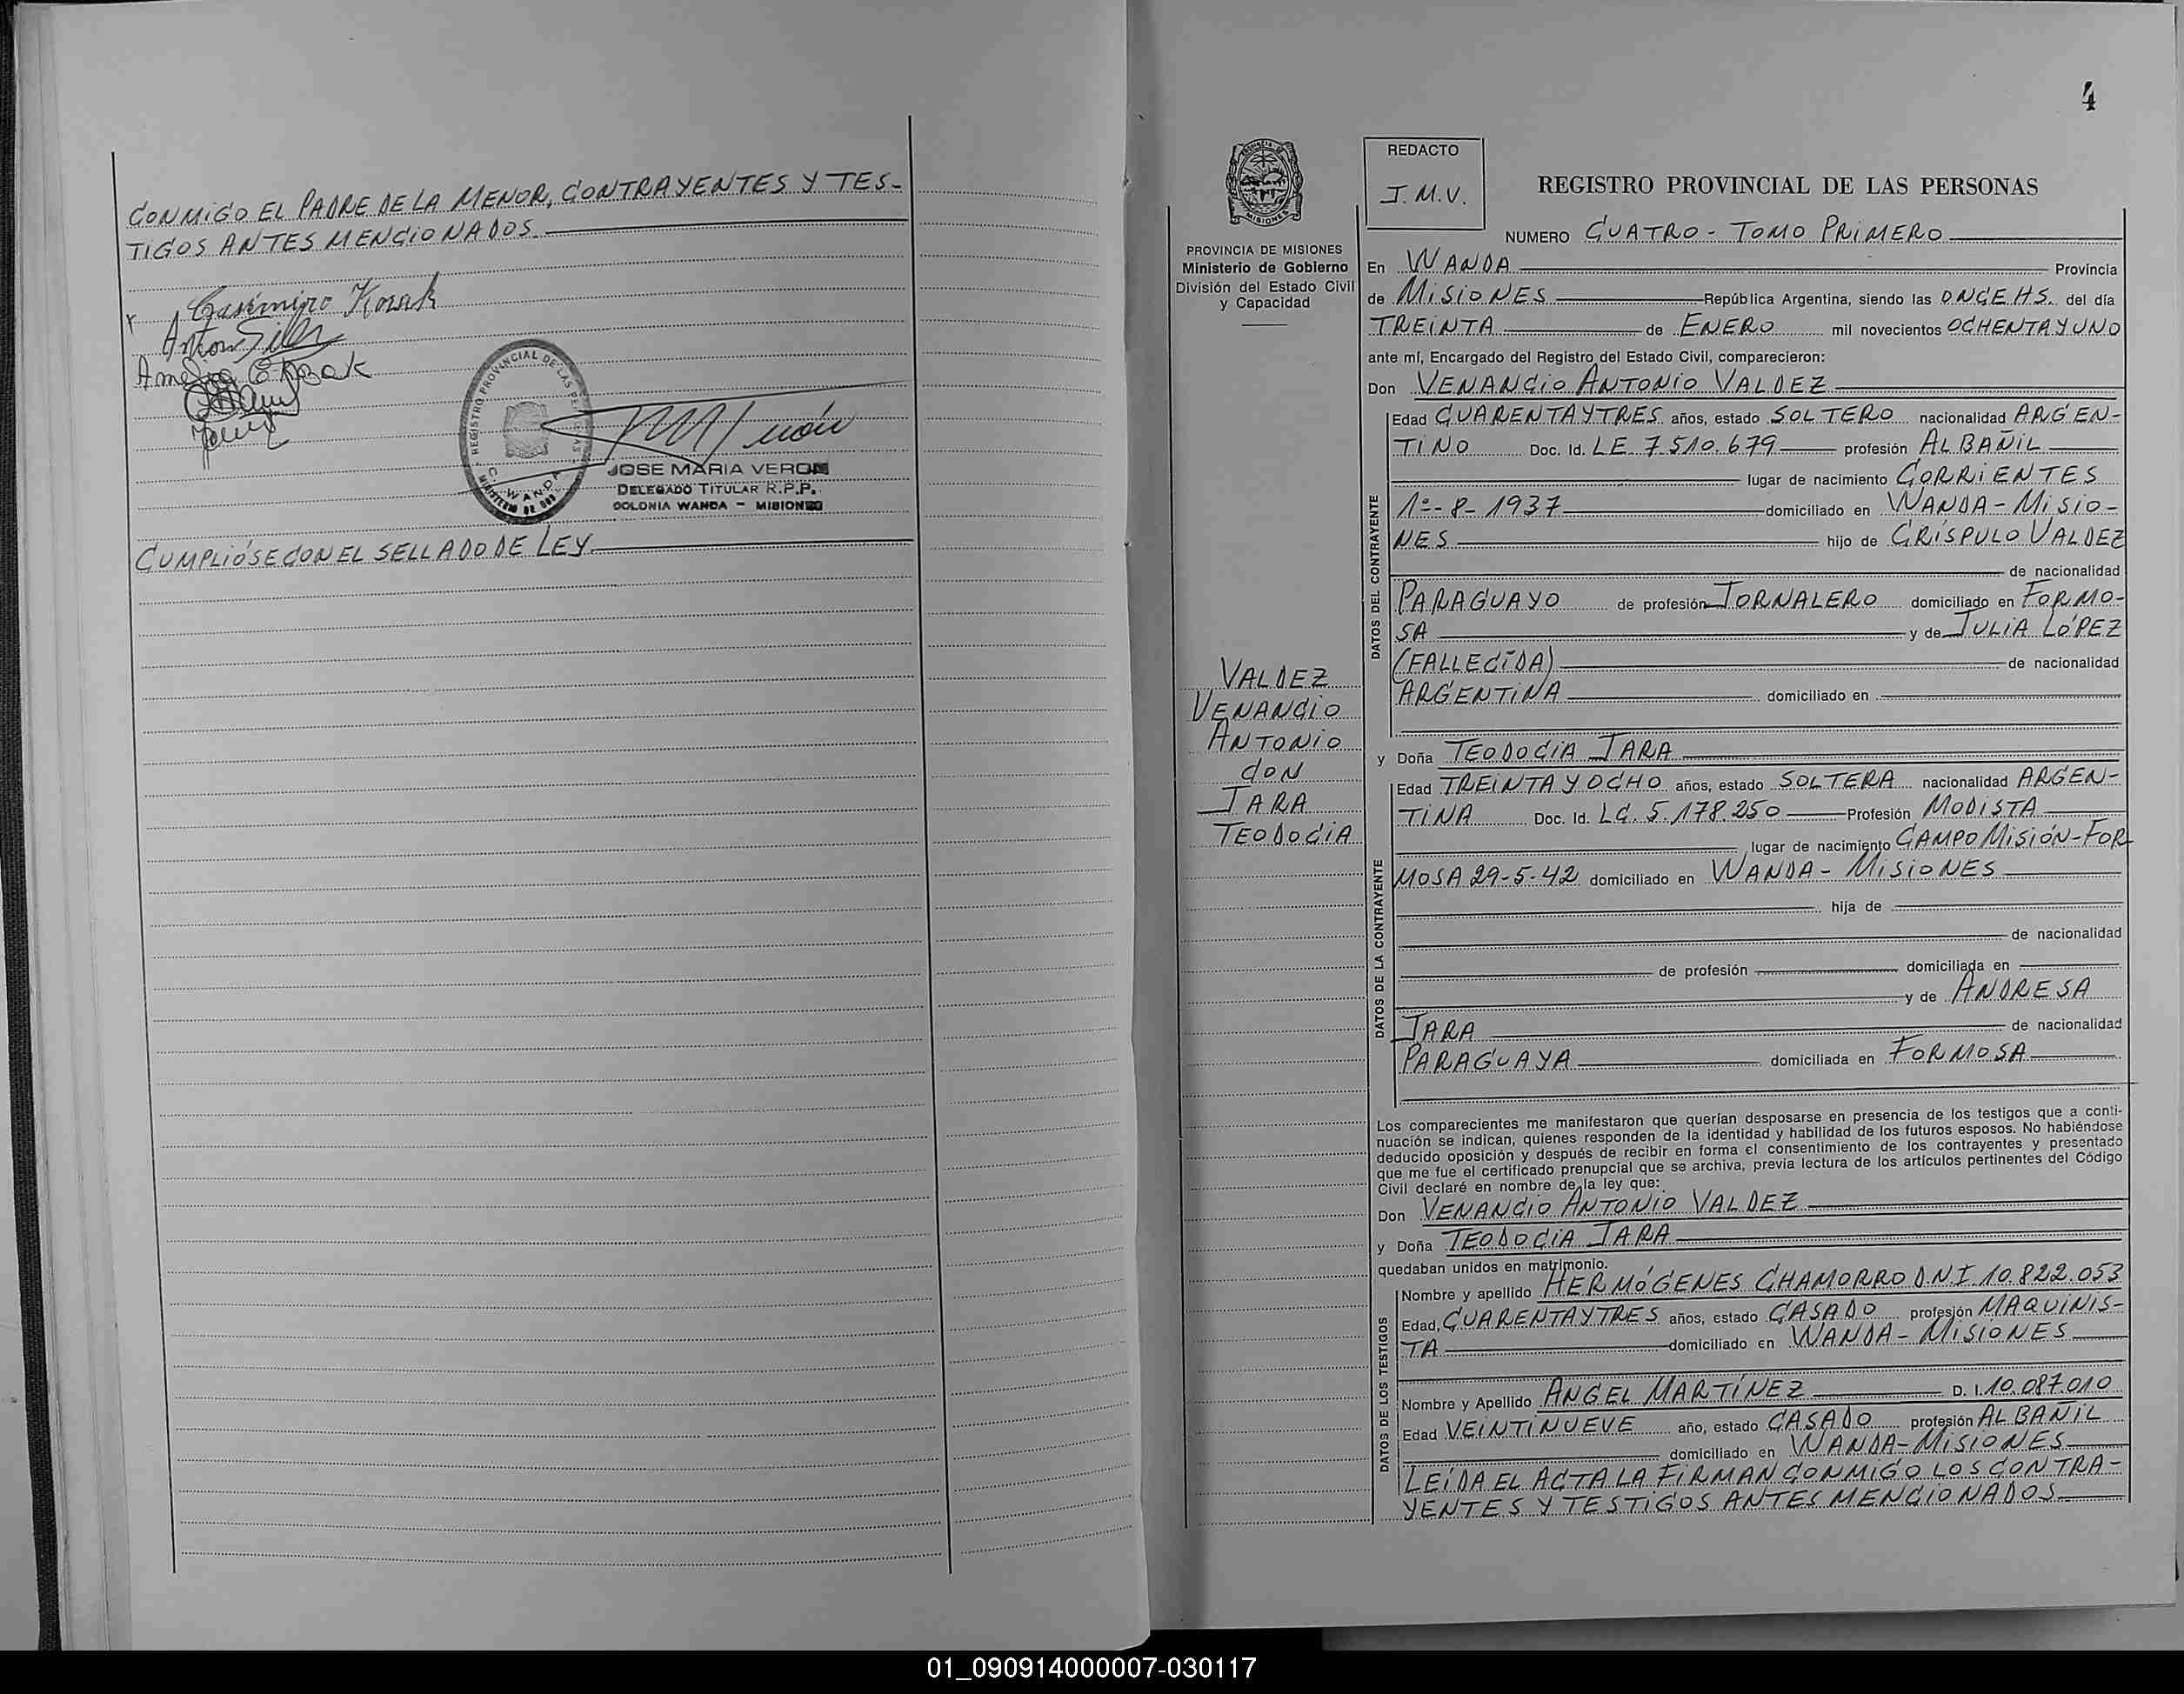 CONMIGO EL PADRE DE LA MENOR, CONTRAYENTES Y TES-
TIGOS ANTES MENCIONADOS.
Casimiro Kozak
REGISTRO PROVINCIAL DE LAS PERSONAS
WANDA
JOSE MARIA VERON
DELEGADO TITULAR R.P.P.
COLONIA WANDA - MISIONES
CUMPLIÓSE CON EL SELLADO DE LEY.
4
PROVINCIA DE MISIONES
Ministerio de Gobierno
División del Estado Civil
y Capacidad
VALDEZ
VENANCIO
ANTONIO
CON
JARA
TEODOCIA
REDACTO
J.M.V.
REGISTRO PROVINCIAL DE LAS PERSONAS
NUMERO CUATRO - TOMO PRIMERO
En WANDA Provincia
de MISIONES República Argentina, siendo las ONCE HS. del día
TREINTA de ENERO mil novecientos OCHENTA Y UNO
ante mí, Encargado del Registro del Estado Civil, comparecieron:
Don VENANCIO ANTONIO VALDEZ
DATOS DEL CONTRAYENTE
Edad CUARENTA Y TRES años, estado SOLTERO nacionalidad ARGEN-
TINO Doc. Id. LE. 7.510.679 profesión ALBAÑIL
lugar de nacimiento CORRIENTES
1º-8-1937 domiciliado en WANDA - MISIO-
NES hijo de CRÍSPULO VALDEZ
de nacionalidad
PARAGUAYO de profesión JORNALERO domiciliado en FORMO-
SA y de JULIA LÓPEZ
(FALLECIDA) de nacionalidad
ARGENTINA domiciliado en
y Doña TEODOCIA JARA
DATOS DE LA CONTRAYENTE
Edad TREINTA Y OCHO años, estado SOLTERA nacionalidad ARGEN-
TINA Doc. Id. LC. 5.178.250 Profesión MODISTA
lugar de nacimiento CAMPO MISIÓN-FOR
MOSA 29-5-42 domiciliado en WANDA - MISIONES
hija de
de nacionalidad
de profesión domiciliada en
y de ANDRESA
JARA de nacionalidad
PARAGUAYA domiciliada en FORMOSA
Los comparecientes me manifestaron que querían desposarse en presencia de los testigos que a conti-
nuación se indican, quienes responden de la identidad y habilidad de los futuros esposos. No habiéndose
deducido oposición y después de recibir en forma el consentimiento de los contrayentes y presentado
que me fue el certificado prenupcial que se archiva, previa lectura de los artículos pertinentes del Código
Civil declaré en nombre de la ley que:
Don VENANCIO ANTONIO VALDEZ
y Doña TEODOCIA JARA
quedaban unidos en matrimonio.
DATOS DE LOS TESTIGOS
Nombre y apellido HERMÓGENES CHAMORRO D.N.I. 10.822.053
Edad, CUARENTA Y TRES años, estado CASADO profesión MAQUINIS-
TA domiciliado en WANDA - MISIONES
Nombre y Apellido ANGEL MARTÍNEZ D. I. 10.087.010
Edad VEINTINUEVE año, estado CASADO profesión ALBAÑIL
domiciliado en WANDA-MISIONES
LEÍDA EL ACTA LA FIRMAN CONMIGO LOS CONTRA-
YENTES Y TESTIGOS ANTES MENCIONADOS
01_090914000007-030117